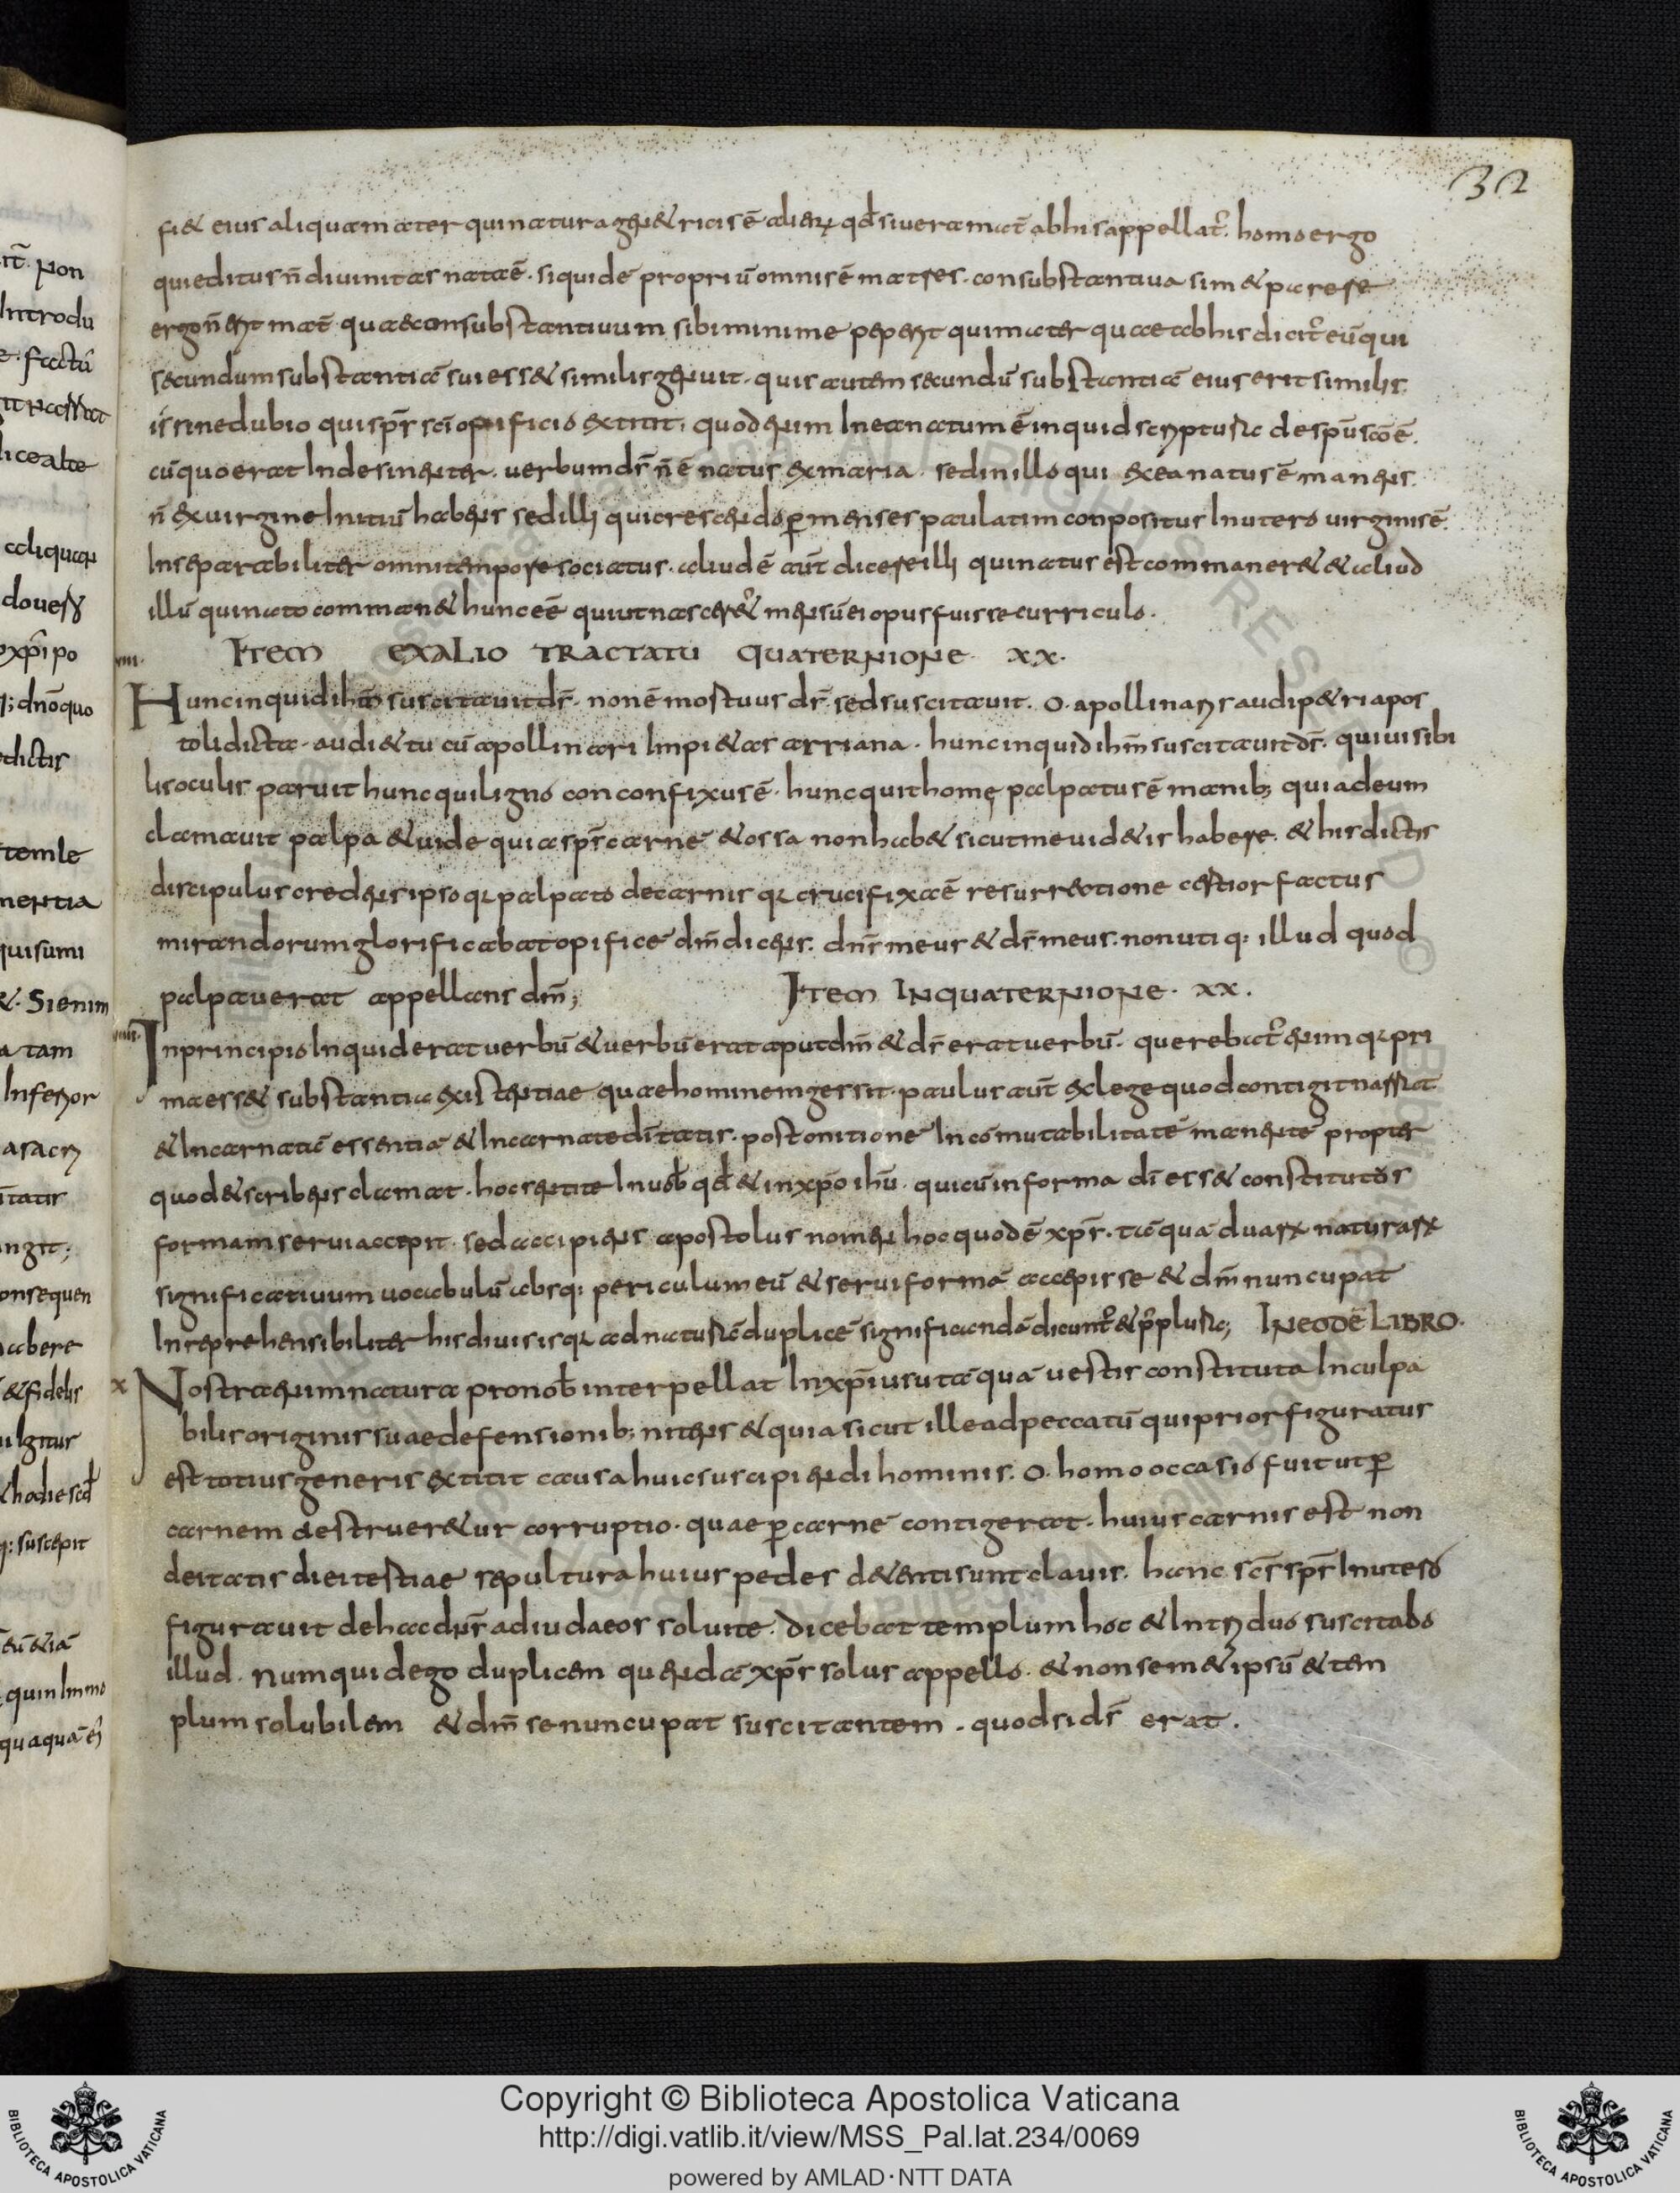 32
fi& eius aliquam ater qui natura gen&ricis ē alienꝝ qd̄ si uera mat̄ ab his appellat᷑. homo ergo
qui editus n̄ diuinitas nata ē. siquidē propriū omnis ē matres. consubstantiua sim& parere
ergo n̄ erit mat̄ quae consubstantiuum sibi minime peperit qui mater quae ab his dicit᷑ eū qui
secundum substantiā sui ess& similis genuit. quis autem secundū substantiā eius erit similis.
is sine dubio qui sp̄r sc̄i opificio extitit. quod enim In ea natum ē inquid scriptura de spū sc̄o ē.
cū quo erat Indesinenter. uerbum dr̄ n̄ ē natus ex maria. sed in illo qui ex ea natus ē manens.
n̄ ex uirgine Initiū habens sed illi qui crescendo ꝑ menses paulatim conpositus In utero uirginis ē.
Inseparabiliter omni tempore sociatus. aliud ē aut̄ dicere illi qui natus est commaner& & aliud
illū qui nato comman& hunc eē qui ut nascer&᷑ mensū ei opus fuisse curriculo.
VIII. ITEM EX ALIO TRACTATU QUATERNIONE XX.
Hunc inquid ihm̄ suscitauit dr̄. non ē mortuus dr̄. sed suscitauit. O. apollinaris audi p&ri apos
toli dicta. audi & tu cū apollinari Impi&as arriana. hunc inquid ihm̄ suscitauit dr̄. qui uisibi
lis oculis paruit hunc qui ligno con confixus ē. hunc qui thomę palpatus ē manib; qui ad eum
clamauit palpa & uide quia spr̄ carnē & ossa non hab& sicut me uid&is habere. & his dictis
discipulus credens ipsoq; palpato de carnis q; crucifixa ē resurrectione certior factus
mirandorum glorificabat opificē dm̄ dicens. dn̄r meus & dr̄ meus. non utiq: illud quod
palpauerat appellans dm̄; ITEM IN QUATERNIONE. XX.
VIIII. In principio Inquid erat uerbū & uerbū erat aput dm̄ & dr̄ erat uerbū. querebat᷑ enim q; pri
ma ess& substantia existentiae quae hominem gerrit. paulus aut̄ ex lege quod contigit narrat
& Incarnatā essentiā & Incarnate dītatis. post onitionē Incōmutabilitatē manentē propter
quod & scribens clamat. hoc sentite In uob̄ qd̄ & in xp̄o ihū. qui cū in forma dī ess& constitutos
formam serui accepit. sed accipiens apostolus nomen hoc quod ē xpr̄. tā quā duarꝝ naturarꝝ
significatiuum uocabulū absq: periculum eū & serui formā accepisse & dm̄ nuncupat
Inreprehensibiliter his diuisis q; ad naturā duplicē significandā dicunt᷑ & p̄plura; IN EODĒ LIBRO.
X Nostra enim natura pro nob̄ interpellat In xp̄i usu tā quā uestis constituta Inculpa
bilis originis suae defensionib; nitens & quia sicut ille ad peccatū qui prior figuratus
est totius generis extitit causa huic suscipiendi hominis. O. homo occasio fuit ut ꝑ
carnem destruer&ur corruptio. quae ꝑ carnē contigerat. huius carnis est non
deitatis diei tertiae sepultura huius pedes detenti sunt clauis. hanc sc̄s spr̄ In utero
figurauit de hac dn̄r ad iudaeos soluite. dicebat templum hoc & In triduo suscitabo
illud. numquid ego duplicem quendā xpr̄ solus appello. & non sem&ipsū & tem
plum solubilem & dm̄ se nuncupat suscitantem. quod si dr̄ erat.
Copyright © Biblioteca Apostolica Vaticana
http://digi.vatlib.it/view/MSS_Pal.lat.234/0069
powered by AMLAD·NTT DATA
BIBLIOTECA APOSTOLICA VATICANA
BIBLIOTECA APOSTOLICA VATICANA